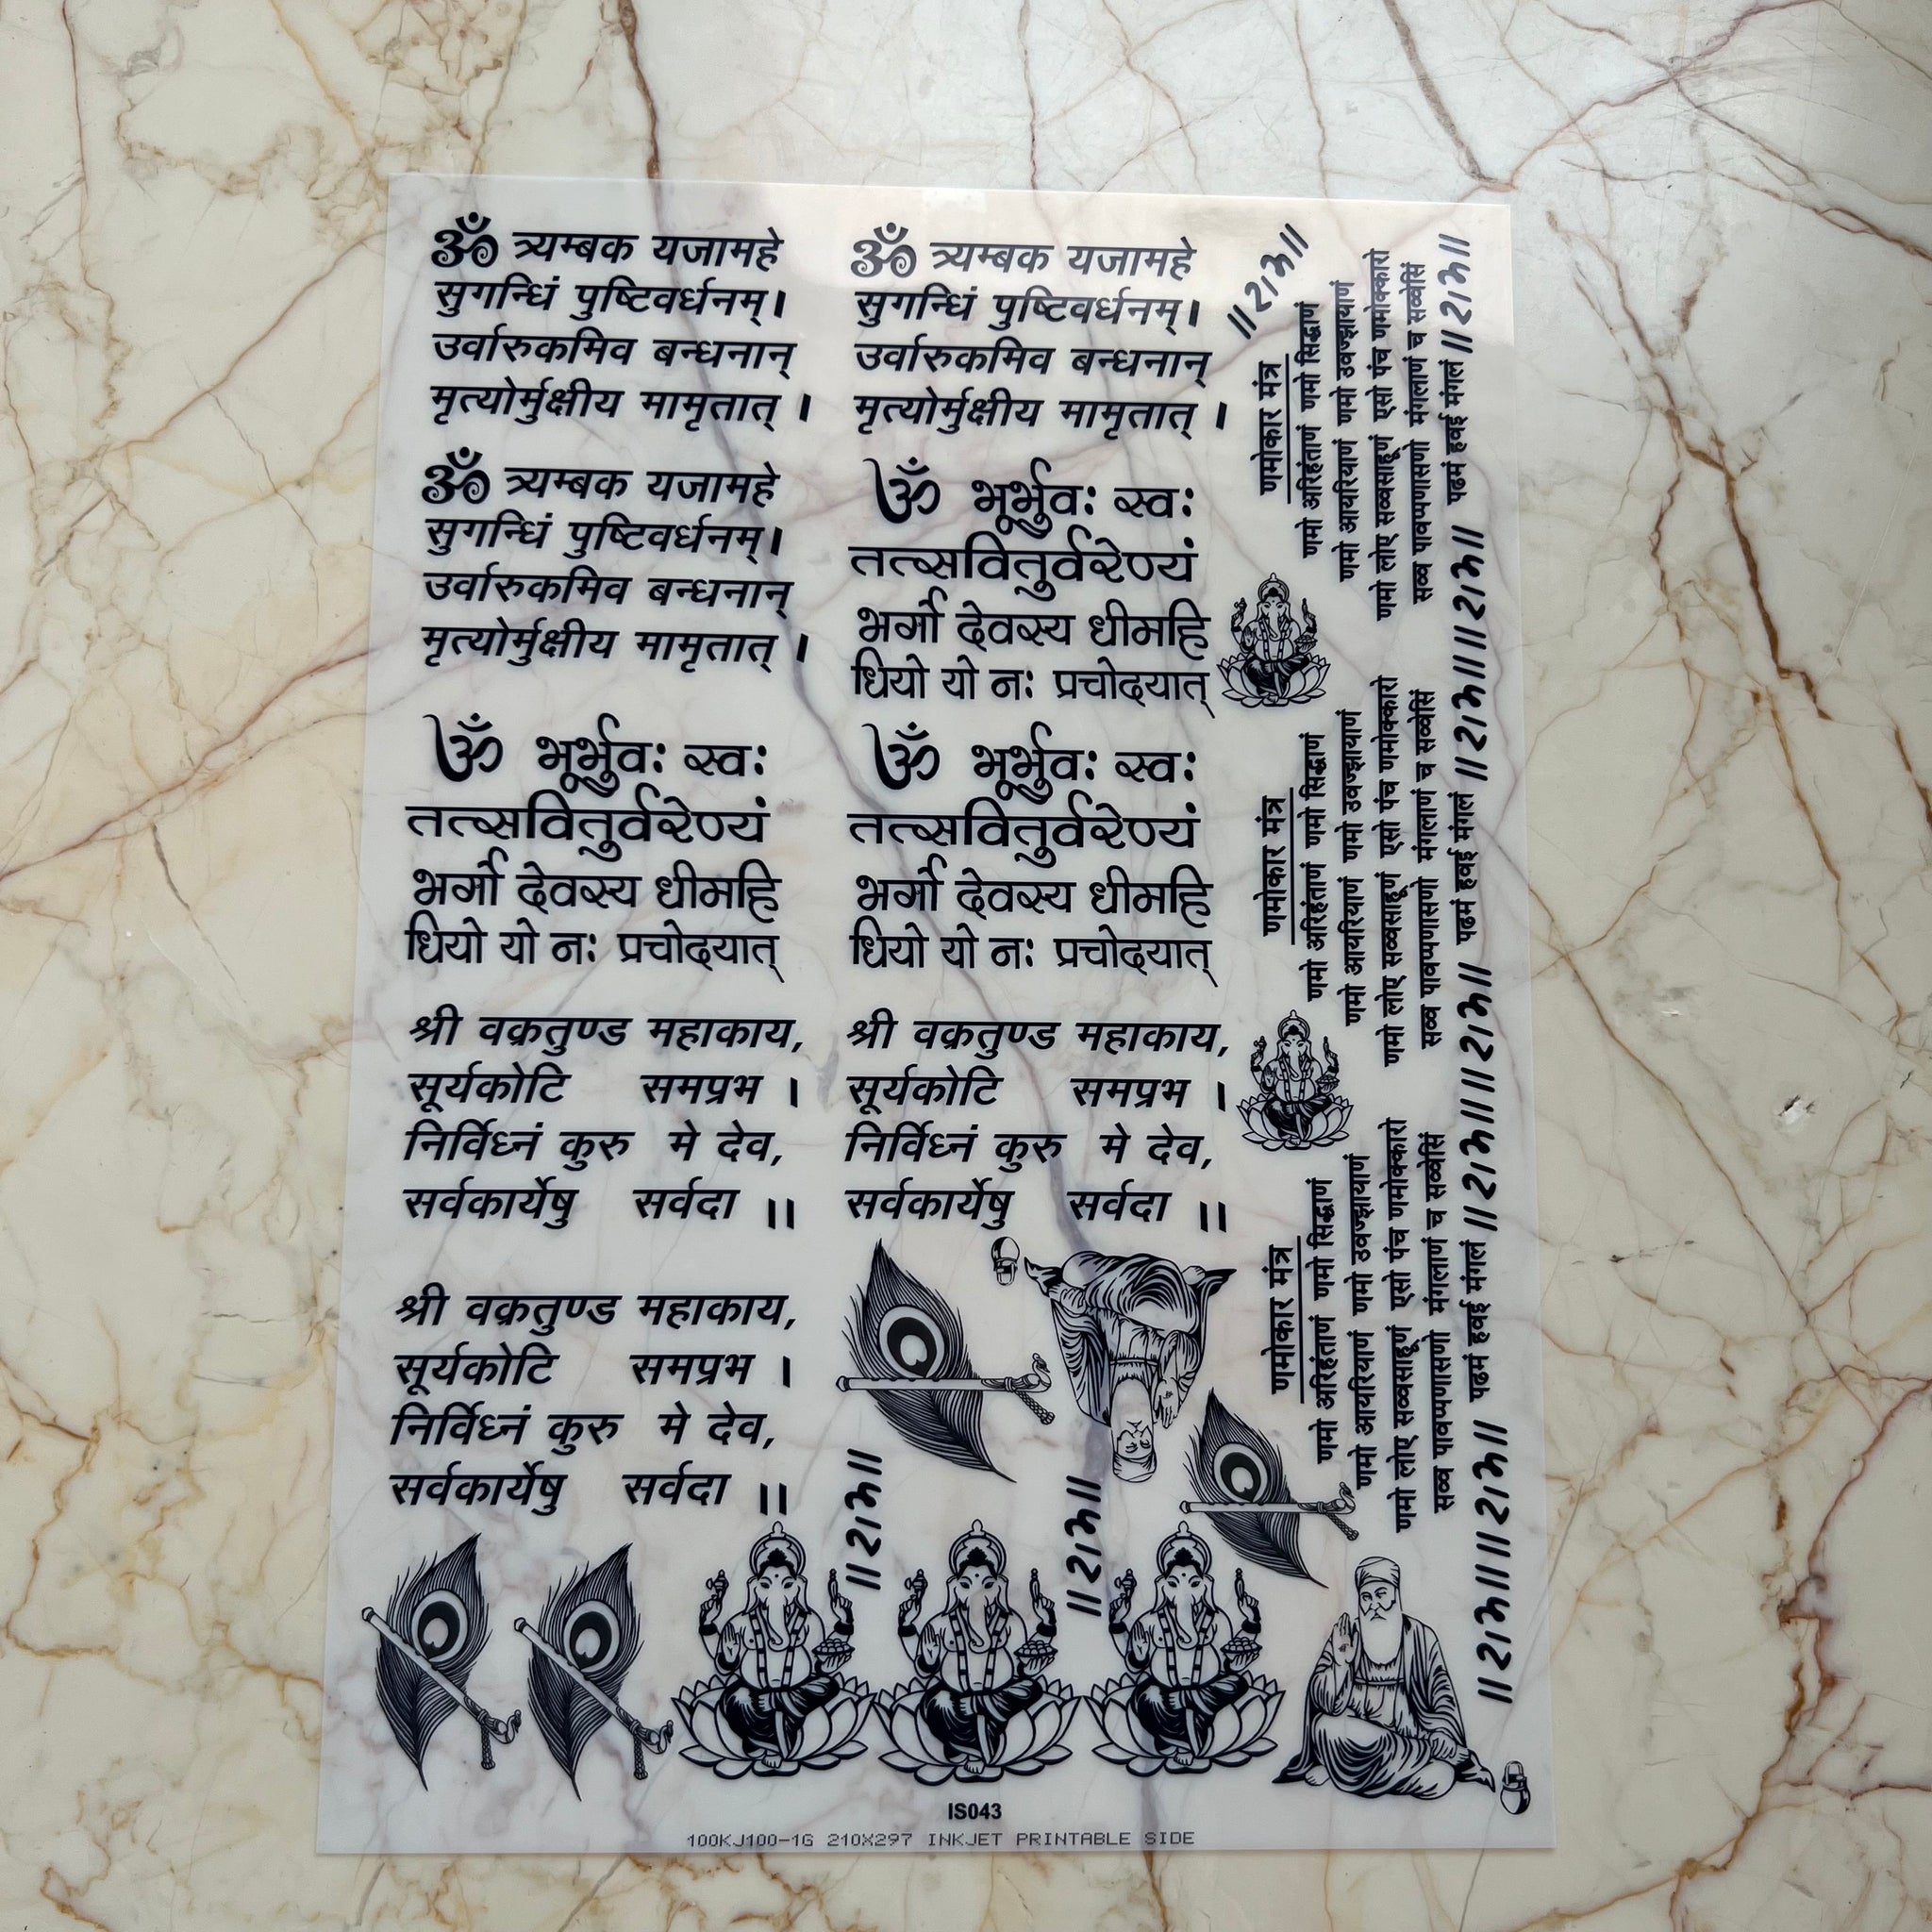 ॐ त्र्यम्बक यजामहे
सुगन्धिं पुष्टिवर्धनम्।
उर्वारुकमिव बन्धनान्
मृत्योर्मुक्षीय मामृतात् ।
ॐ त्र्यम्बक यजामहे
सुगन्धिं पुष्टिवर्धनम्।
उर्वारुकमिव बन्धनान्
मृत्योर्मुक्षीय मामृतात् ।
ॐ त्र्यम्बक यजामहे
सुगन्धिं पुष्टिवर्धनम्।
उर्वारुकमिव बन्धनान्
मृत्योर्मुक्षीय मामृतात् ।
ॐ भूर्भुवः स्वः
तत्सवितुर्वरेण्यं
भर्गो देवस्य धीमहि
धियो यो नः प्रचोदयात्
ॐ भूर्भुवः स्वः
तत्सवितुर्वरेण्यं
भर्गो देवस्य धीमहि
धियो यो नः प्रचोदयात्
ॐ भूर्भुवः स्वः
तत्सवितुर्वरेण्यं
भर्गो देवस्य धीमहि
धियो यो नः प्रचोदयात्
श्री वक्रतुण्ड महाकाय,
सूर्यकोटि समप्रभ ।
निर्विघ्नं कुरु मे देव,
सर्वकार्येषु सर्वदा ।।
श्री वक्रतुण्ड महाकाय,
सूर्यकोटि समप्रभ ।
निर्विघ्नं कुरु मे देव,
सर्वकार्येषु सर्वदा ।।
श्री वक्रतुण्ड महाकाय,
सूर्यकोटि समप्रभ ।
निर्विघ्नं कुरु मे देव,
सर्वकार्येषु सर्वदा ।।
॥राम॥
णमोकार मंत्र
णमो अरिहंताणं णमो सिद्धाणं
णमो आयरियाणं णमो उवज्झायाणं
णमो लोए सव्वसाहूणं एसो पंच णमोक्कारो
सव्व पावप्पणासणो मंगलाणं च सव्वेसिं
पढमं हवई मंगलं
॥राम॥
॥राम॥
णमोकार मंत्र
णमो अरिहंताणं णमो सिद्धाणं
णमो आयरियाणं णमो उवज्झायाणं
णमो लोए सव्वसाहूणं एसो पंच णमोक्कारो
सव्व पावप्पणासणो मंगलाणं च सव्वेसिं
पढमं हवई मंगलं
॥राम॥
॥राम॥
णमोकार मंत्र
णमो अरिहंताणं णमो सिद्धाणं
णमो आयरियाणं णमो उवज्झायाणं
णमो लोए सव्वसाहूणं एसो पंच णमोक्कारो
सव्व पावप्पणासणो मंगलाणं च सव्वेसिं
पढमं हवई मंगलं
॥राम॥
॥राम॥
॥राम॥
॥राम॥
॥राम॥
IS043
100KJ100-1G 210X297 INKJET PRINTABLE SIDE